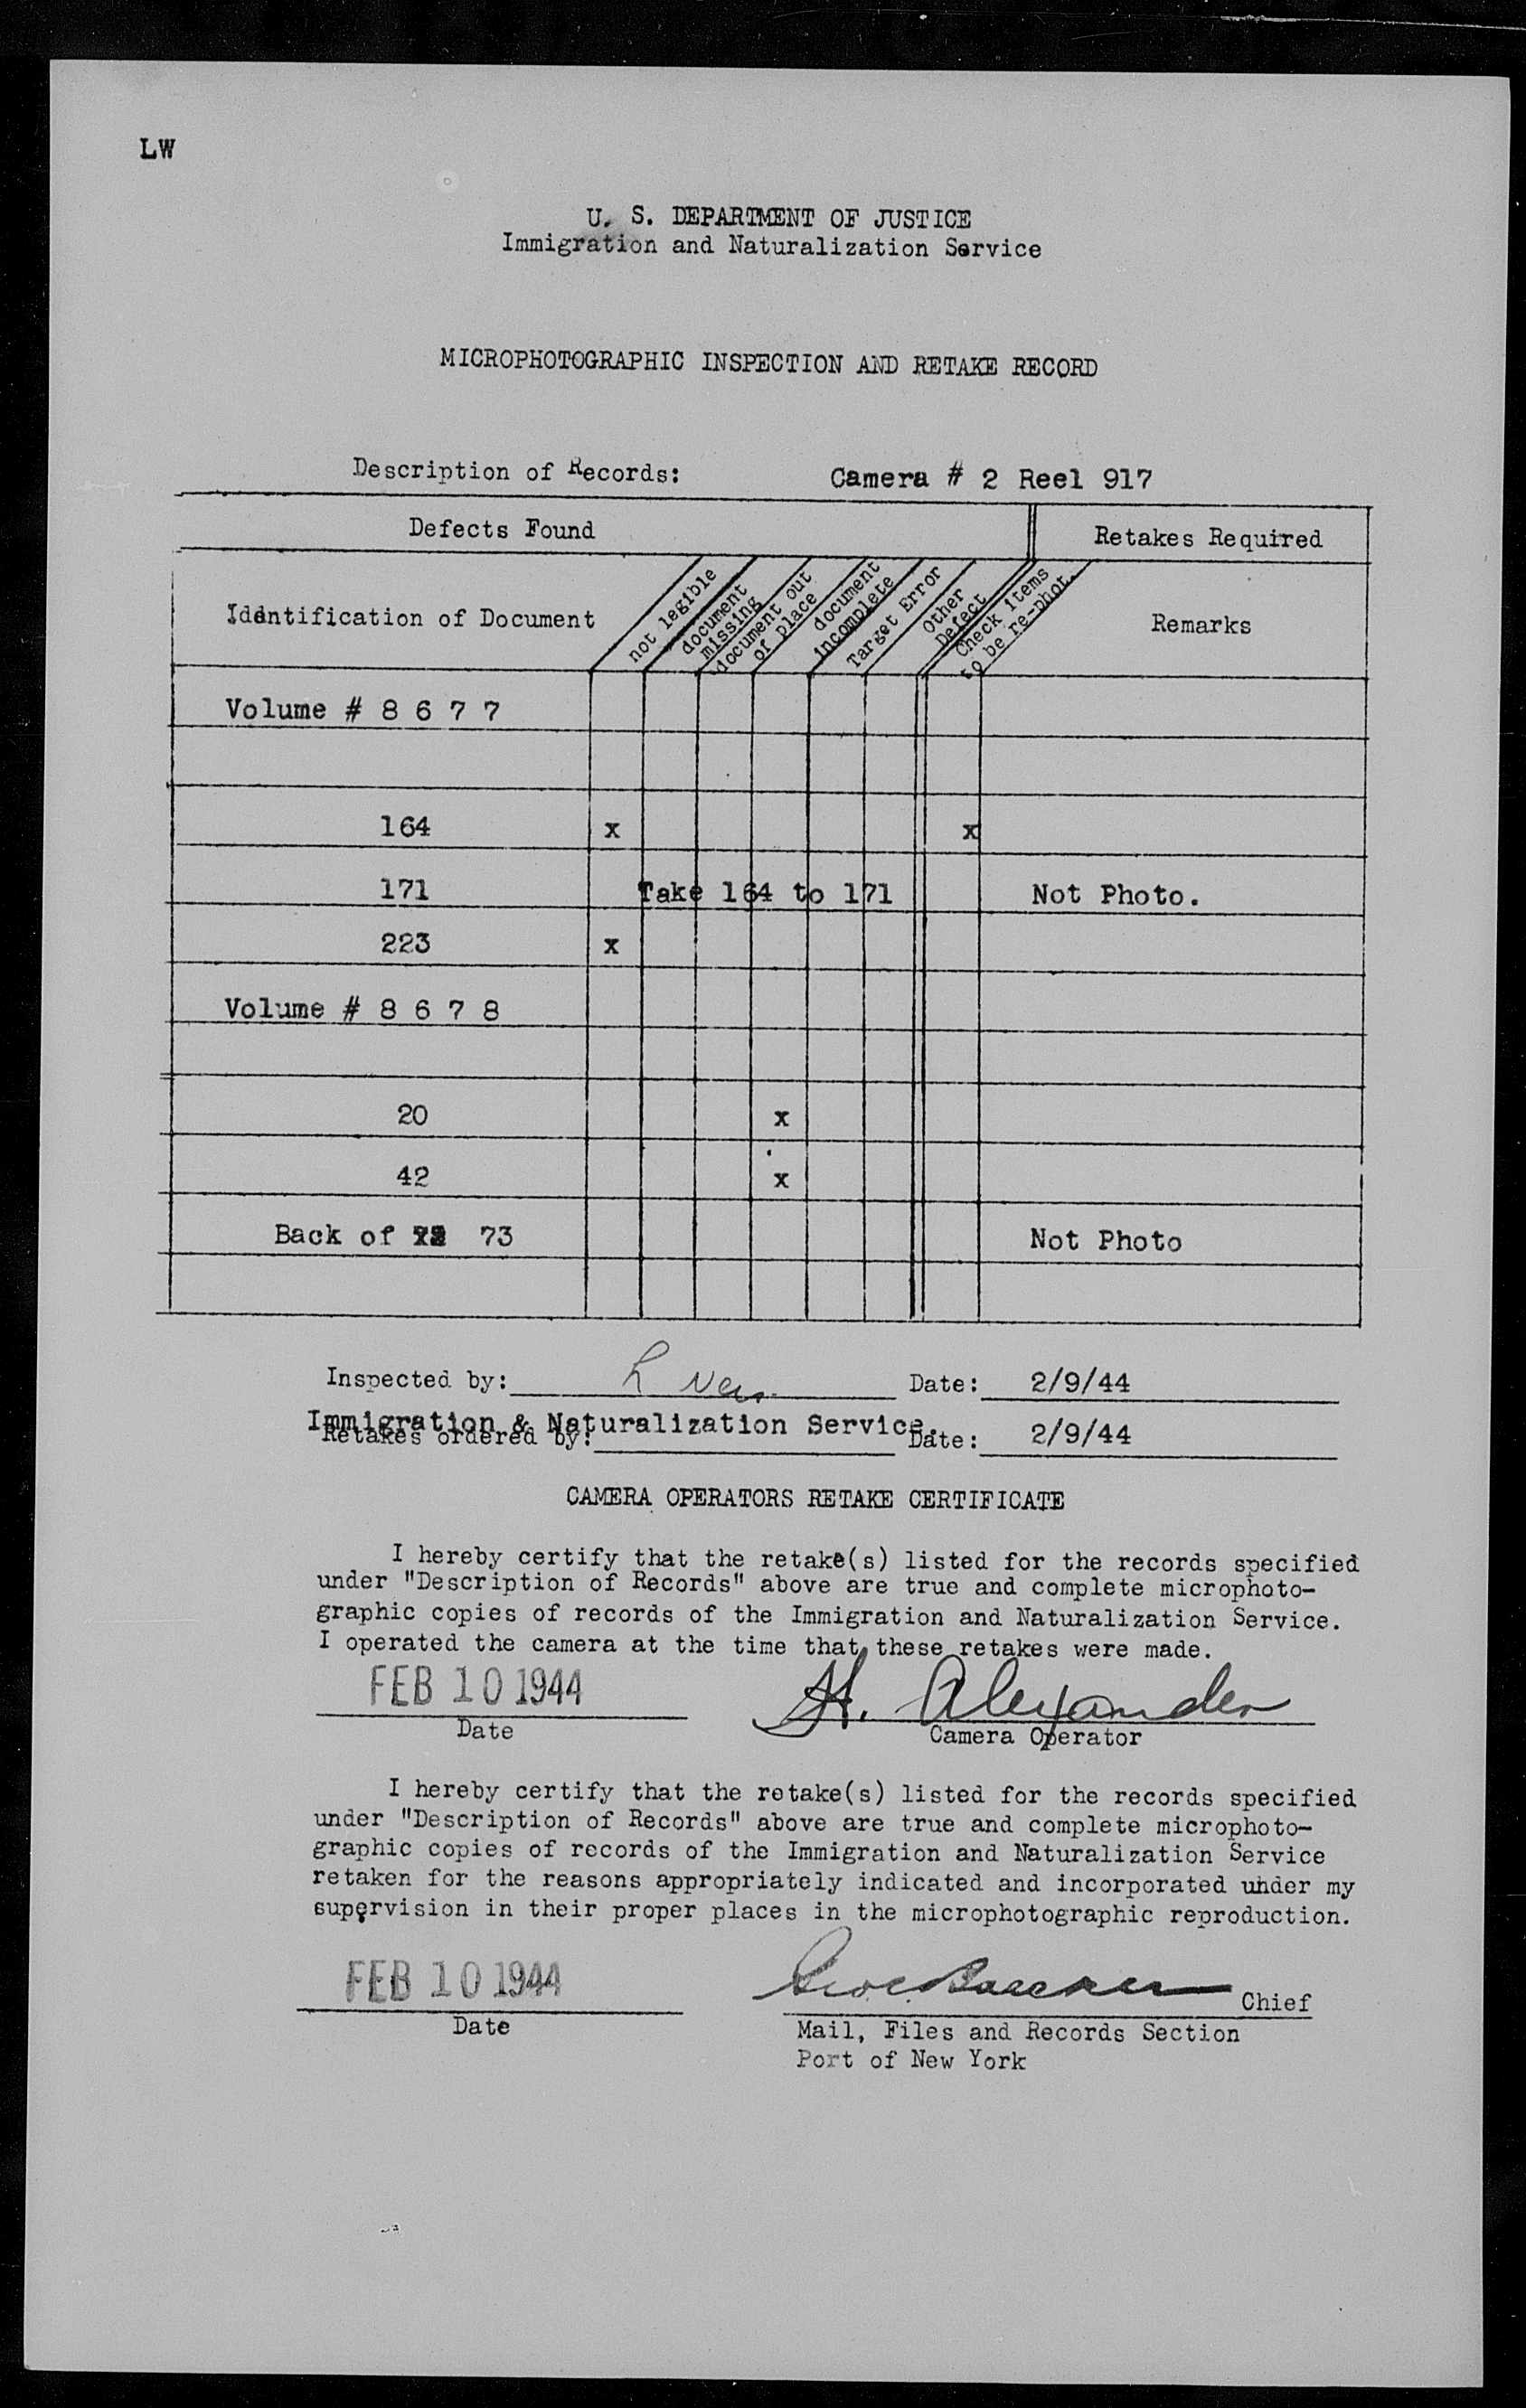 LW
U. S. DEPARTMENT OF JUSTICE
Immigration and Naturalization Service
MICROPHOTOGRAPHIC INSPECTION AND RETAKE RECORD
Description of Records: Camera # 2 Reel 917
Defects Found Retakes Required
Identification of Document not legible document missing document out of place document incomplete Target Error Other Defect Check items to be re-phot. Remarks
Volume # 8 6 7 7
164 x x
171 Take 164 to 171 Not Photo.
223 x
Volume # 8 6 7 8
20 x
42 x
Back of 73 Not Photo
Inspected by: Date: 2/9/44
Immigration & Naturalization Service.
Retakes ordered by: Date: 2/9/44
CAMERA OPERATORS RETAKE CERTIFICATE
I hereby certify that the retake(s) listed for the records specified
under "Description of Records" above are true and complete microphoto-
graphic copies of records of the Immigration and Naturalization Service.
I operated the camera at the time that these retakes were made.
FEB 10 1944 H. Alexander
Date Camera Operator
I hereby certify that the retake(s) listed for the records specified
under "Description of Records" above are true and complete microphoto-
graphic copies of records of the Immigration and Naturalization Service
retaken for the reasons appropriately indicated and incorporated under my
supervision in their proper places in the microphotographic reproduction.
FEB 10 1944 Chief
Date Mail, Files and Records Section
Port of New York